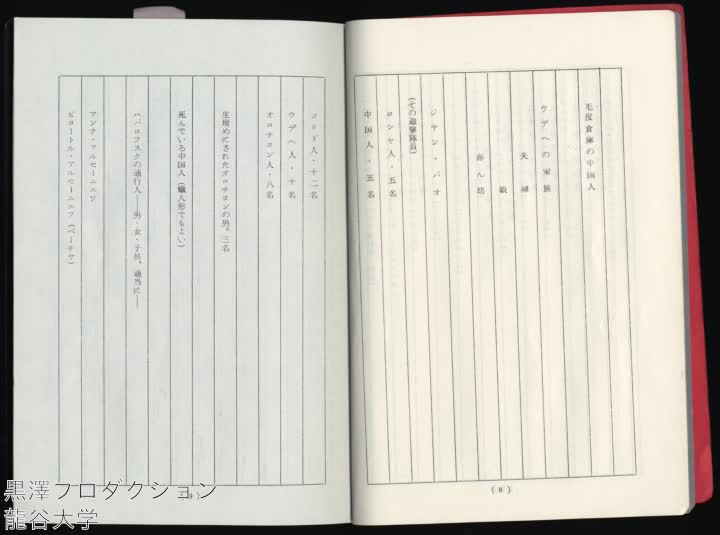 毛皮倉庫の中国人
ウデヘの家族
夫婦
娘
赤ん坊
ジャン・バオ
(その遊撃隊員)
ロシヤ人・五名
中国人・五名
(8)
ゴリド人・十二名
ウデヘ人・十名
オロチョン人・八名
生埋めにされたオロチョンの男。三名
死んでいる中国人(蠟人形でもよい)
ハバロフスクの通行人――男・女・子供、適当に――
アンナ・アルセーニエワ
ピョートル・アルセーニエフ(ペーチャ)
(9)
黒澤プロダクション
龍谷大学